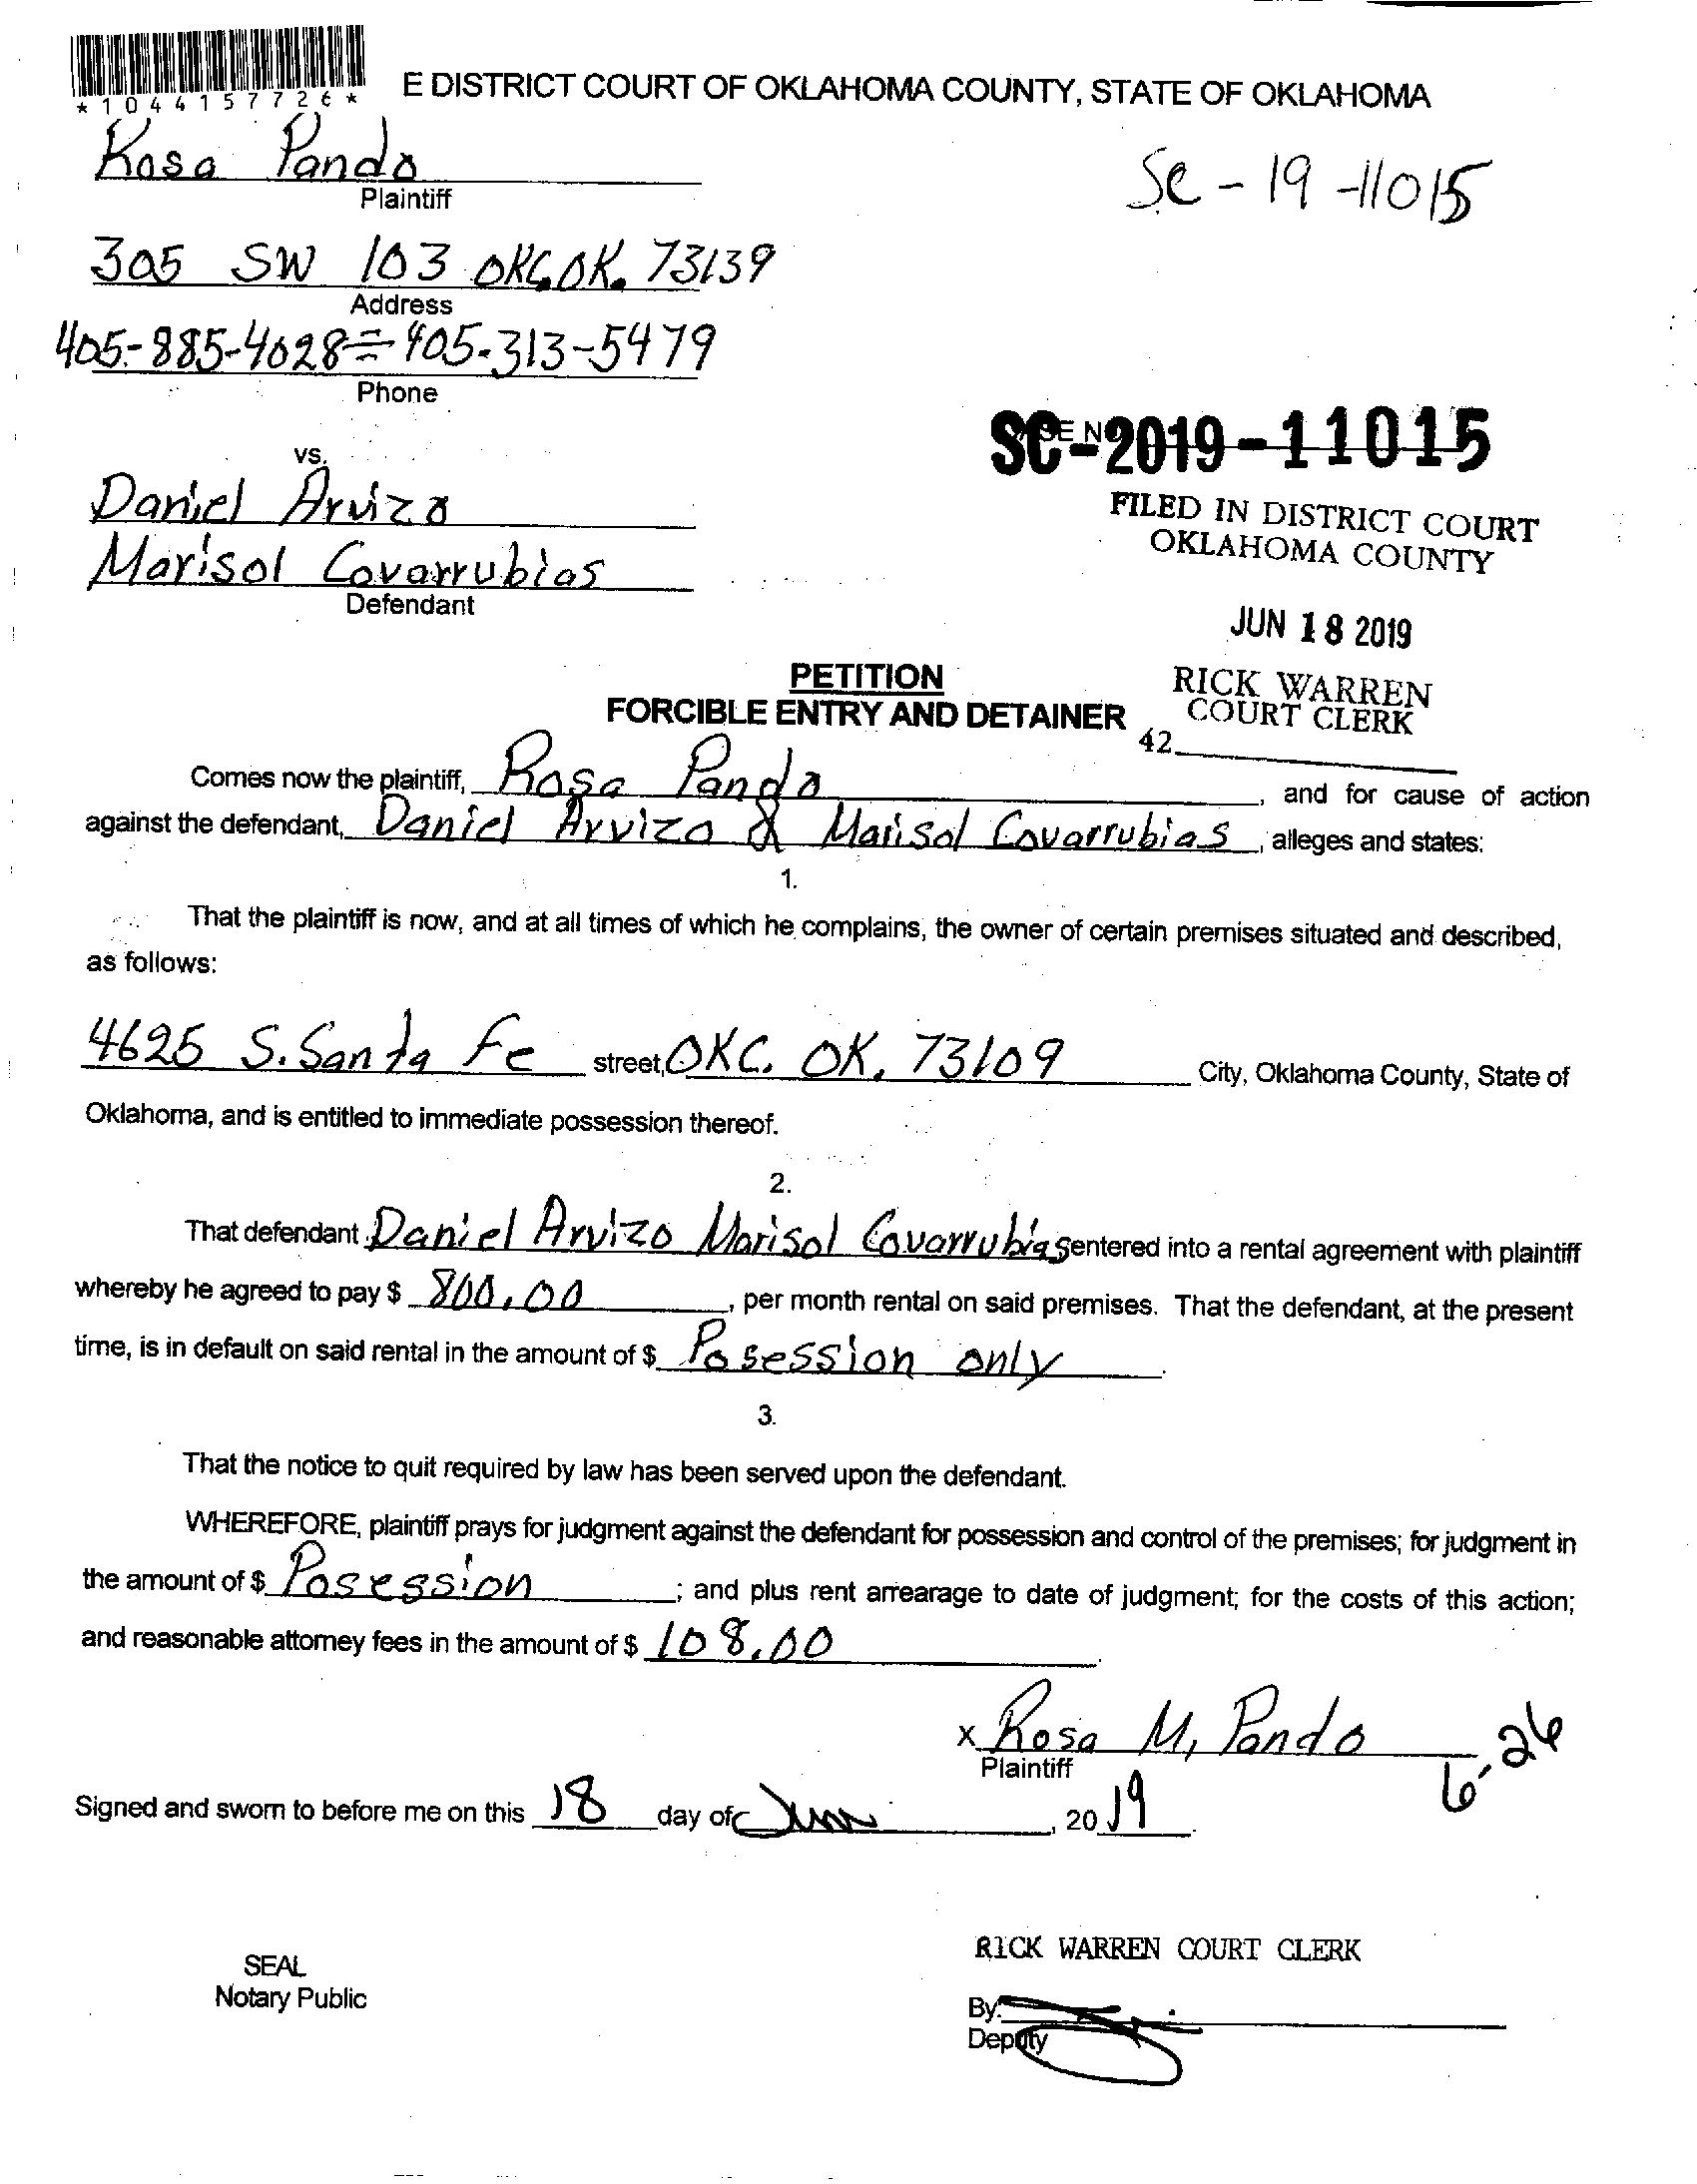 *1044157726*
E DISTRICT COURT OF OKLAHOMA COUNTY, STATE OF OKLAHOMA
Rosa Pando
Plaintiff
SC-19-11015
305 SW 103 OKC.OK. 73139
Address
405-885-4028 = 405-313-5479
Phone
SC-2019-11015
vs.
Daniel Arvizo
FILED IN DISTRICT COURT
OKLAHOMA COUNTY
Marisol Covarrubias
Defendant
JUN 18 2019
PETITION
FORCIBLE ENTRY AND DETAINER
RICK WARREN
COURT CLERK
42
Comes now the plaintiff, Rosa Pando, and for cause of action
against the defendant, Daniel Arvizo & Marisol Covarrubias, alleges and states:
1.
That the plaintiff is now, and at all times of which he complains, the owner of certain premises situated and described,
as follows:
4625 S. Santa Fe street, OKC. OK. 73109 City, Oklahoma County, State of
Oklahoma, and is entitled to immediate possession thereof.
2.
That defendant Daniel Arvizo Marisol Covarrubias entered into a rental agreement with plaintiff
whereby he agreed to pay $ 800.00, per month rental on said premises. That the defendant, at the present
time, is in default on said rental in the amount of $ Posession only.
3.
That the notice to quit required by law has been served upon the defendant.
WHEREFORE, plaintiff prays for judgment against the defendant for possession and control of the premises; for judgment in
the amount of $ Posession; and plus rent arrearage to date of judgment; for the costs of this action;
and reasonable attorney fees in the amount of $ 108.00.
x Rosa M, Pando
Plaintiff
6-26
Signed and sworn to before me on this 18 day of June, 2019.
RICK WARREN COURT CLERK
SEAL
Notary Public
By:
Deputy